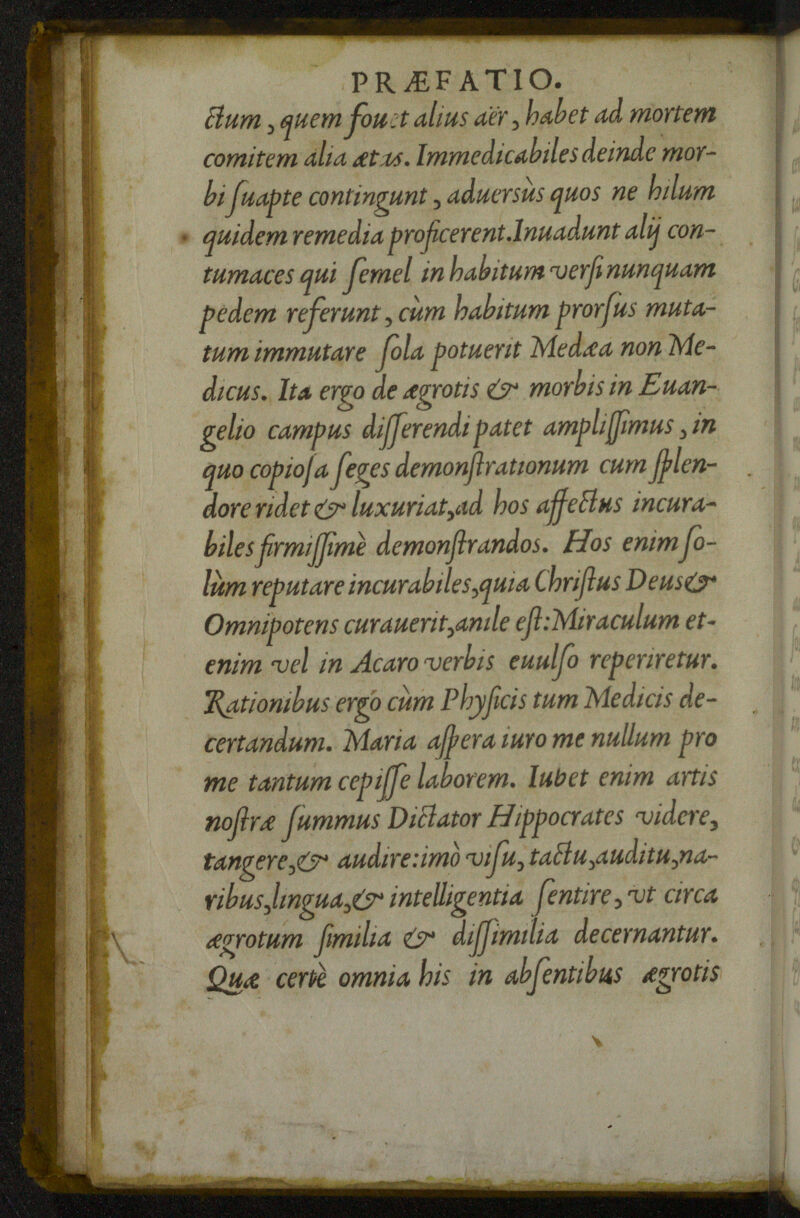 PRÆFATIO.
ctum, quem fouet alius aër, habet ad mortem
comitem alia ætas. Immedicabiles deinde mor-
bi ſuapte contingunt, aduersùs quos ne hilum
quidem remedia proficerent. Inuadunt alij con-
tumaces qui ſemel in habitum verſi nunquam
pedem referunt, cùm habitum prorſus muta-
tum immutare ſola potuerit Medæa non Me-
dicus. Ita ergo de ægrotis & morbis in Euan-
gelio campus diſſerendi patet ampliſſimus, in
quo copioſa ſeges demonſtrationum cum ſplen-
dore ridet & luxuriat, ad hos affectus incura-
biles firmiſſimè demonſtrandos. Hos enim ſo-
lùm reputare incurabiles, quia Chriſtus Deus &
Omnipotens curauerit, anile eſt: Miraculum et-
enim vel in Acaro verbis euulſo reperiretur.
Rationibus ergò cùm Phyſicis tum Medicis de-
certandum. Maria aſpera iuro me nullum pro
me tantum cepiſſe laborem. Iubet enim artis
noſtræ ſummus Dictator Hippocrates videre,
tangere, & audire: imò viſu, tactu, auditu, na-
ribus, lingua, & intelligentia ſentire, vt circa
ægrotum ſimilia & diſſimilia decernantur.
Quæ certè omnia his in abſentibus ægrotis